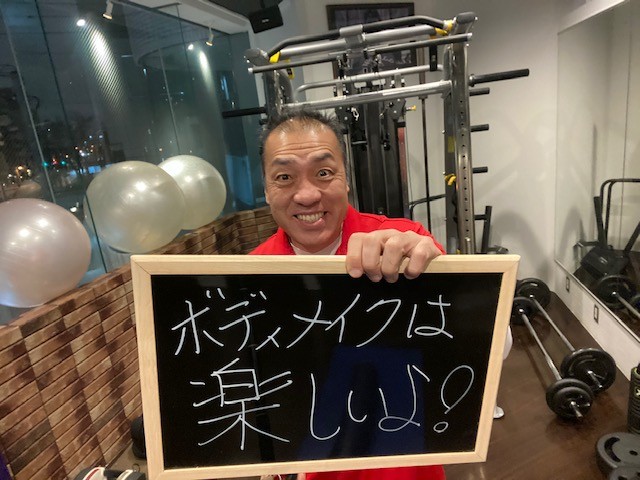 ボディメイクは
楽しいよ!